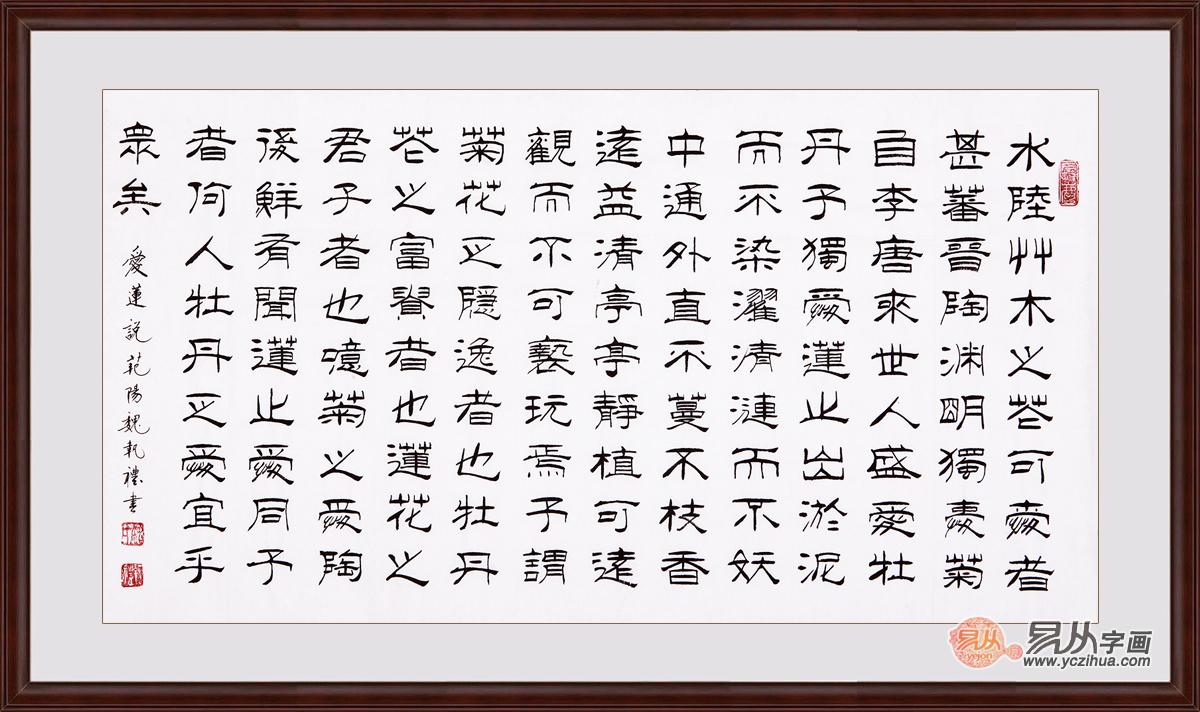 水陸艸木之芲可愛者
甚蕃晉陶渊明獨愛菊
自李唐來世人盛愛牡
丹予獨愛蓮止出淤泥
而不染濯清漣而不妖
中通外直不蔓不枝香
遠益清亭亭靜植可遠
觀而不可褻玩焉予謂
菊花之隱逸者也牡丹
芲之富貴者也蓮花之
君子者也噫菊之愛陶
後鮮有聞蓮止愛同予
者何人牡丹之愛宜乎
眾矣
愛蓮說范陽魏執禮書
易从
yejon
易从字画
www.yczihua.com